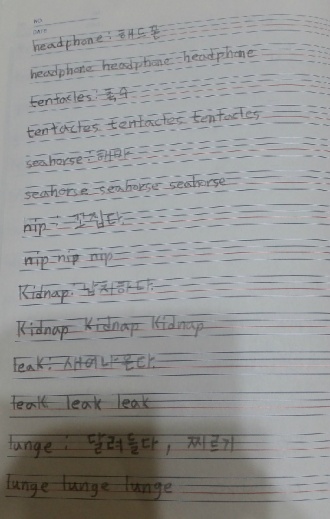 NO.
DATE
headphone : 헤드폰
headphone headphone headphone
tentacles : 촉수
tentacles tentacles tentacles
seahorse : 해마
seahorse seahorse seahorse
nip : 꼬집다
nip nip nip
Kidnap : 납치하다
Kidnap Kidnap Kidnap
leak : 새어나온다
leak leak leak
lunge : 달려들다, 찌르기
lunge lunge lunge